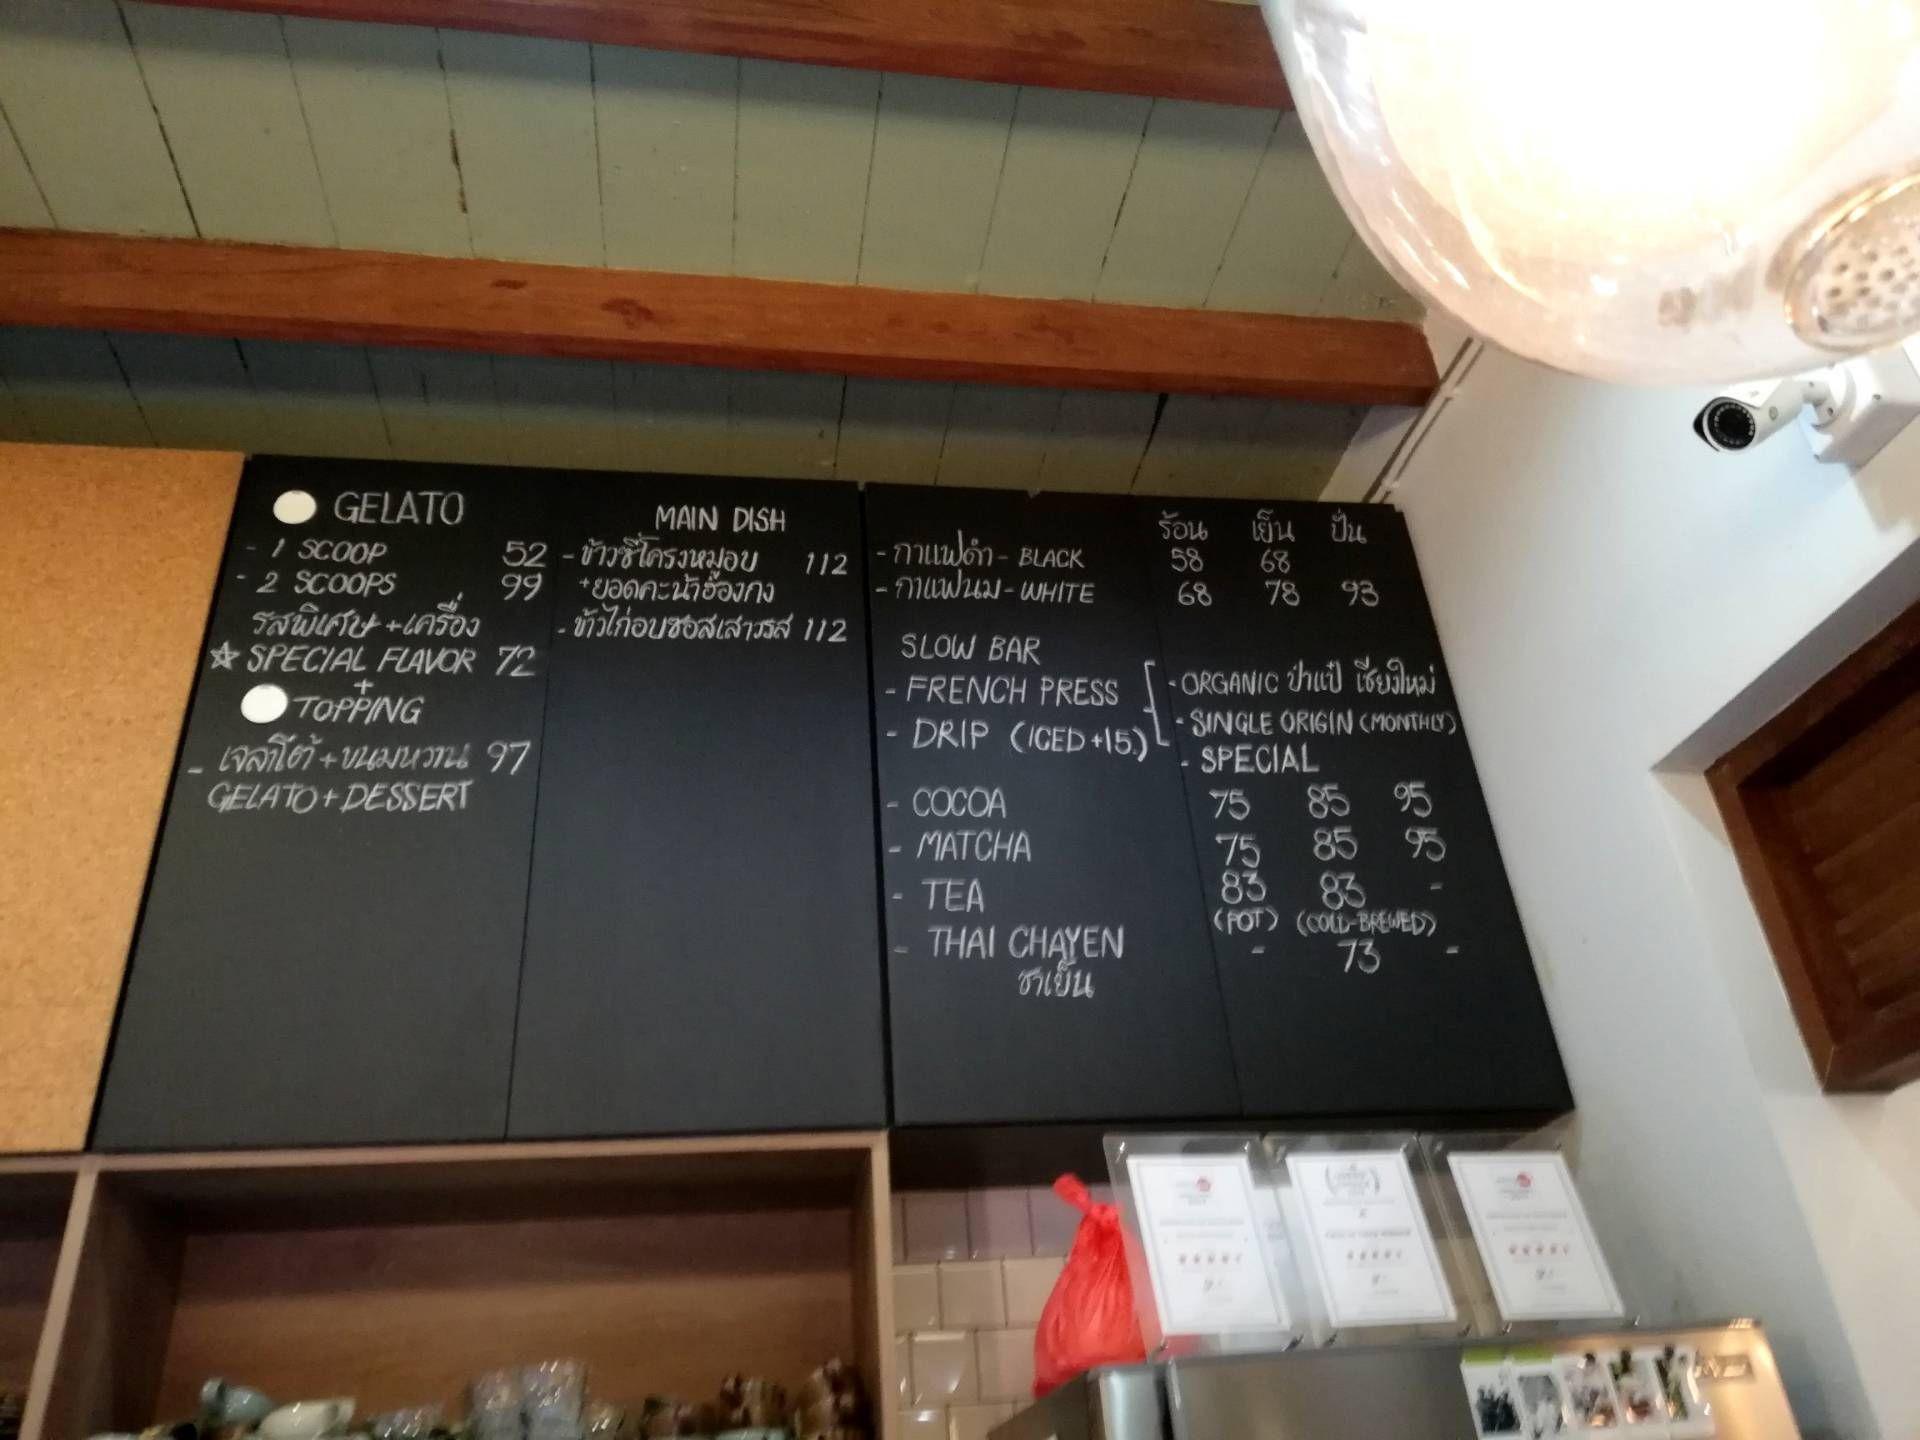 GELATO
- 1 SCOOP 52
- 2 SCOOPS 99
รสพิเศษ + เครื่อง
☆ SPECIAL FLAVOR 72
+
TOPPING
- เจลาโต้ + ขนมหวาน 97
GELATO + DESSERT
MAIN DISH
- ข้าวซี่โครงหมูอบ 112
+ยอดคะน้าฮ่องกง
- ข้าวไก่อบซอสเสาวรส 112
ร้อน เย็น ปั่น
- กาแฟดำ - BLACK 58 68
- กาแฟนม - WHITE 68 78 93
SLOW BAR
- FRENCH PRESS
- DRIP (ICED +15.)
- ORGANIC ป่าแป๋ เชียงใหม่
- SINGLE ORIGIN (MONTHLY)
- SPECIAL
- COCOA 75 85 95
- MATCHA 75 85 95
- TEA 83 83 -
(POT) (COLD-BREWED)
- THAI CHAYEN - 73 -
ชาเย็น